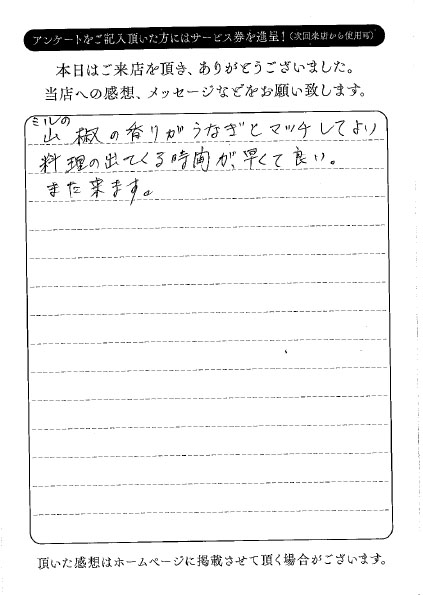 アンケートをご記入頂いた方にはサービス券を進呈！（次回来店から使用可）
本日はご来店を頂き、ありがとうございました。
当店への感想、メッセージなどをお願い致します。
ミルの
山椒の香りがうなぎとマッチしてよい
料理の出てくる時間が、早くて良い。
また来ます。
頂いた感想はホームページに掲載させて頂く場合がございます。